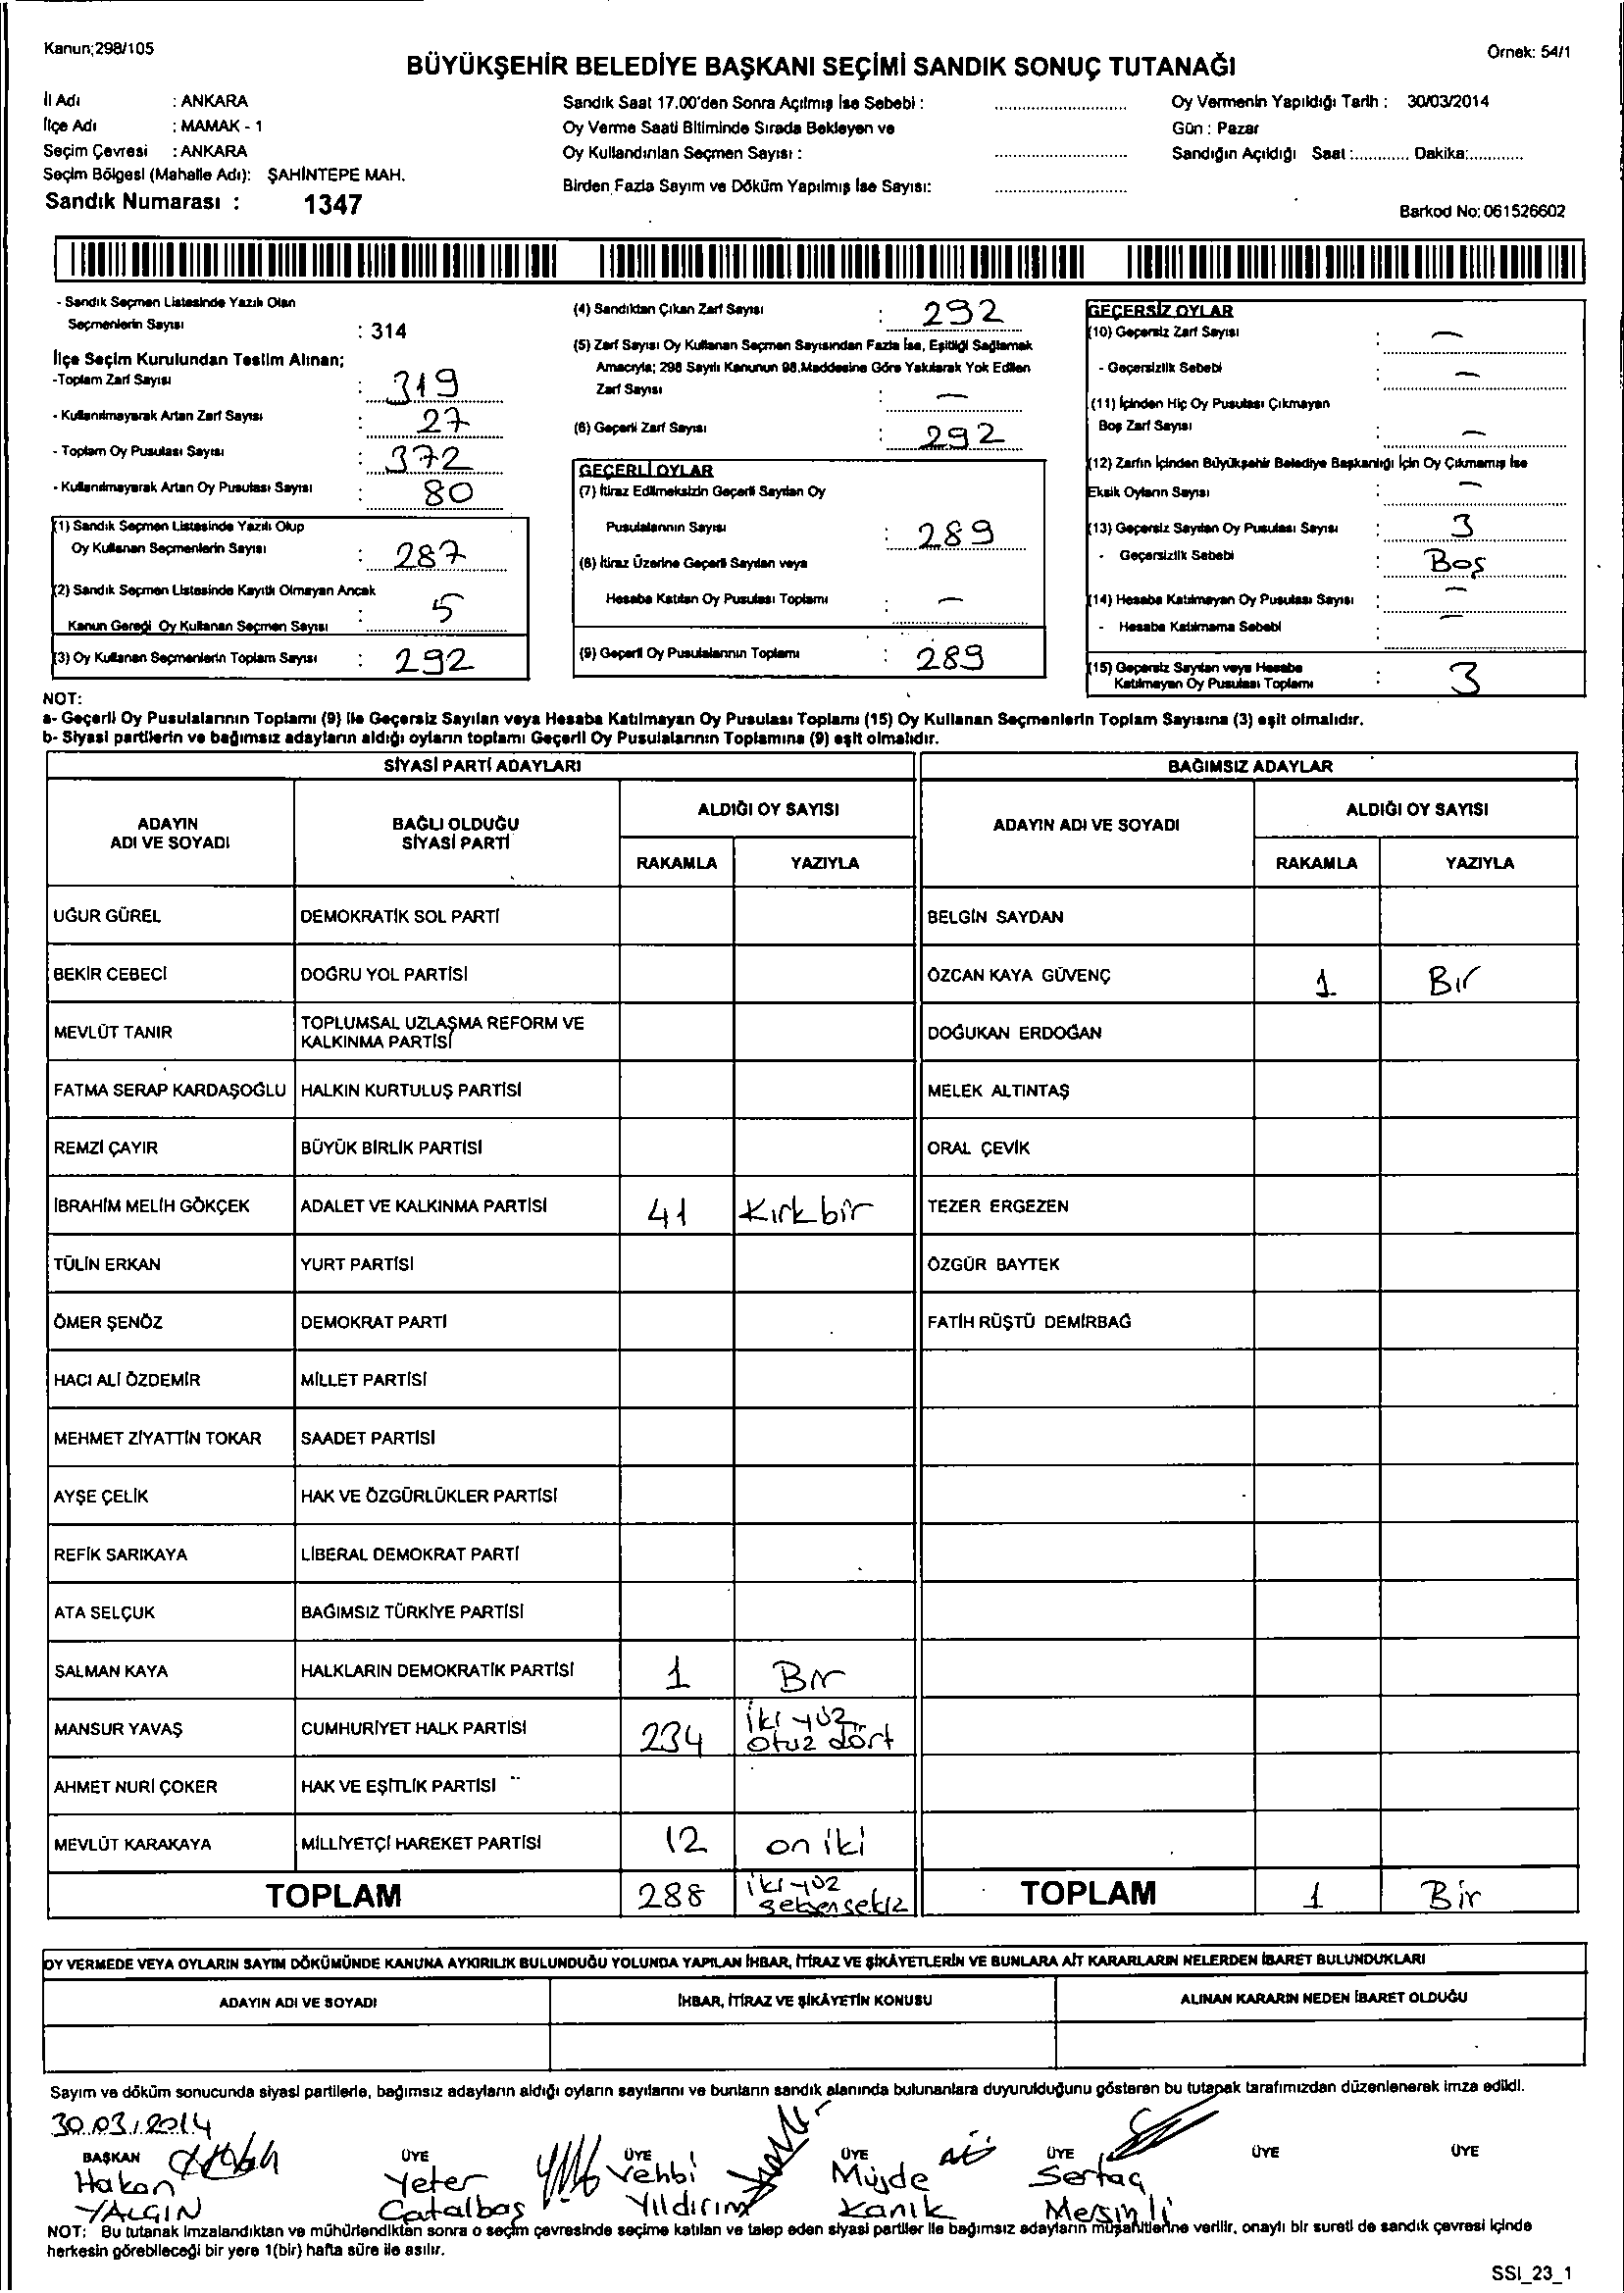 Kanun;298/105
Örnek: 54/1
BÜYÜKŞEHİR BELEDİYE BAŞKANI SEÇİMİ SANDIK SONUÇ TUTANAĞI
İl Adı : ANKARA
İlçe Adı : MAMAK - 1
Seçim Çevresi : ANKARA
Seçim Bölgesi (Mahalle Adı): ŞAHİNTEPE MAH.
Sandık Numarası : 1347
Sandık Saat 17.00'den Sonra Açılmış İse Sebebi : ..............................
Oy Verme Saati Bitiminde Sırada Bekleyen ve
Oy Kullandırılan Seçmen Sayısı : ..............................
Birden Fazla Sayım ve Döküm Yapılmış İse Sayısı: ..............................
Oy Vermenin Yapıldığı Tarih : 30/03/2014
Gün : Pazar
Sandığın Açıldığı Saat :............. Dakika:.............
Barkod No: 061526602
- Sandık Seçmen Listesinde Yazılı Olan
Seçmenlerin Sayısı : 314
İlçe Seçim Kurulundan Teslim Alınan;
-Toplam Zarf Sayısı : 319
- Kullanılmayarak Artan Zarf Sayısı : 27
- Toplam Oy Pusulası Sayısı : 372
- Kullanılmayarak Artan Oy Pusulası Sayısı : 80
(1) Sandık Seçmen Listesinde Yazılı Olup
Oy Kullanan Seçmenlerin Sayısı : 287
(2) Sandık Seçmen Listesinde Kayıtlı Olmayan Ancak
Kanun Gereği Oy Kullanan Seçmen Sayısı : 5
(3) Oy Kullanan Seçmenlerin Toplam Sayısı : 292
(4) Sandıktan Çıkan Zarf Sayısı : 292
(5) Zarf Sayısı Oy Kullanan Seçmen Sayısından Fazla İse, Eşitliği Sağlamak
Amacıyla; 298 Sayılı Kanunun 98.Maddesine Göre Yakılarak Yok Edilen
Zarf Sayısı : —
(6) Geçerli Zarf Sayısı : 292
GEÇERLİ OYLAR
(7) İtiraz Edilmeksizin Geçerli Sayılan Oy
Pusulalarının Sayısı : 289
(8) İtiraz Üzerine Geçerli Sayılan veya
Hesaba Katılan Oy Pusulası Toplamı : —
(9) Geçerli Oy Pusulalarının Toplamı : 289
GEÇERSİZ OYLAR
(10) Geçersiz Zarf Sayısı : —
- Geçersizlik Sebebi : —
(11) İçinden Hiç Oy Pusulası Çıkmayan
Boş Zarf Sayısı : —
(12) Zarfın İçinden Büyükşehir Belediye Başkanlığı İçin Oy Çıkmamış İse
Eksik Oyların Sayısı : —
(13) Geçersiz Sayılan Oy Pusulası Sayısı : 3
- Geçersizlik Sebebi : Boş
(14) Hesaba Katılmayan Oy Pusulası Sayısı : —
- Hesaba Katılmama Sebebi : —
(15) Geçersiz Sayılan veya Hesaba
Katılmayan Oy Pusulası Toplamı : 3
NOT:
a- Geçerli Oy Pusulalarının Toplamı (9) ile Geçersiz Sayılan veya Hesaba Katılmayan Oy Pusulası Toplamı (15) Oy Kullanan Seçmenlerin Toplam Sayısına (3) eşit olmalıdır.
b- Siyasi partilerin ve bağımsız adayların aldığı oyların toplamı Geçerli Oy Pusulalarının Toplamına (9) eşit olmalıdır.
SİYASİ PARTİ ADAYLARI
BAĞIMSIZ ADAYLAR
ADAYIN
ADI VE SOYADI
BAĞLI OLDUĞU
SİYASİ PARTİ
ALDIĞI OY SAYISI
RAKAMLA YAZIYLA
ADAYIN ADI VE SOYADI
ALDIĞI OY SAYISI
RAKAMLA YAZIYLA
UĞUR GÜREL DEMOKRATİK SOL PARTİ BELGİN SAYDAN
BEKİR CEBECİ DOĞRU YOL PARTİSİ ÖZCAN KAYA GÜVENÇ 1 Bir
MEVLÜT TANIR TOPLUMSAL UZLAŞMA REFORM VE
KALKINMA PARTİSİ DOĞUKAN ERDOĞAN
FATMA SERAP KARDAŞOĞLU HALKIN KURTULUŞ PARTİSİ MELEK ALTINTAŞ
REMZİ ÇAYIR BÜYÜK BİRLİK PARTİSİ ORAL ÇEVİK
İBRAHİM MELİH GÖKÇEK ADALET VE KALKINMA PARTİSİ 41 Kırk bir TEZER ERGEZEN
TÜLİN ERKAN YURT PARTİSİ ÖZGÜR BAYTEK
ÖMER ŞENÖZ DEMOKRAT PARTİ FATİH RÜŞTÜ DEMİRBAĞ
HACI ALİ ÖZDEMİR MİLLET PARTİSİ
MEHMET ZİYATTİN TOKAR SAADET PARTİSİ
AYŞE ÇELİK HAK VE ÖZGÜRLÜKLER PARTİSİ
REFİK SARIKAYA LİBERAL DEMOKRAT PARTİ
ATA SELÇUK BAĞIMSIZ TÜRKİYE PARTİSİ
SALMAN KAYA HALKLARIN DEMOKRATİK PARTİSİ 1 Bir
MANSUR YAVAŞ CUMHURİYET HALK PARTİSİ 234 iki yüz
otuz dört
AHMET NURİ ÇOKER HAK VE EŞİTLİK PARTİSİ
MEVLÜT KARAKAYA MİLLİYETÇİ HAREKET PARTİSİ 12 on iki
TOPLAM 288 iki yüz
seksen sekiz TOPLAM 1 Bir
OY VERMEDE VEYA OYLARIN SAYIM DÖKÜMÜNDE KANUNA AYKIRILIK BULUNDUĞU YOLUNDA YAPILAN İHBAR, İTİRAZ VE ŞİKÂYETLERİN VE BUNLARA AİT KARARLARIN NELERDEN İBARET BULUNDUKLARI
ADAYIN ADI VE SOYADI İHBAR, İTİRAZ VE ŞİKÂYETİN KONUSU ALINAN KARARIN NEDEN İBARET OLDUĞU
Sayım ve döküm sonucunda siyasi partilerle, bağımsız adayların aldığı oyların sayılarını ve bunların sandık alanında bulunanlara duyurulduğunu gösteren bu tutanak tarafımızdan düzenlenerek imza edildi.
30.03.2014
BAŞKAN ÜYE ÜYE ÜYE ÜYE ÜYE ÜYE
Hakan Yeter Vehbi Müjde Sertaç
YALGIN Çatalbaş Yıldırım Kanık Mersinli
NOT: Bu tutanak imzalandıktan ve mühürlendikten sonra o seçim çevresinde seçime katılan ve talep eden siyasi partiler ile bağımsız adayların müşahitlerine verilir, onaylı bir sureti de sandık çevresi içinde
herkesin görebileceği bir yere 1(bir) hafta süre ile asılır.
SSI_23_1